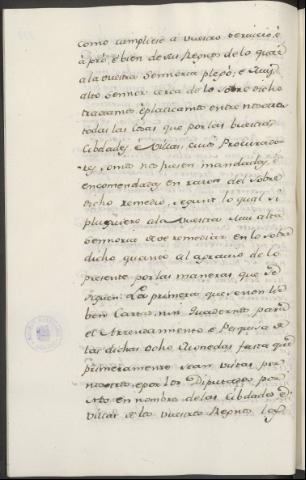 como cumpliese a vuestro servicio, é
à pro, é bien de sus Reynos de lo qual
a la vuestra Sennoria plegò; é Muy
alto Sennor cerca de lo sobre dicho
tratamos é platicamos entre nosotros
todas las cosas que por las buestras
Cibdades, é Villas, cuios Procurado-
res somos nos fueron mandadas, é
encomendadas en razon del sobre
dicho remedio, segunt lo qual si
pluguiere a la Vuestra Mui alta
Sennoria se de remediar en lo sobre
dicho quanto al agravio de lo
presente por las maneras que se
siguen: La primera que se non li-
bren Cartas, nin Quaderno para
el Arrendamiento é Pesquisa de
las dichas Ocho Monedas fasta que
primeramente sean vistas por
nosotros, é por los Diputados por
Nos en nombre de las Cibdades é
Villas de los vuestros Reynos los